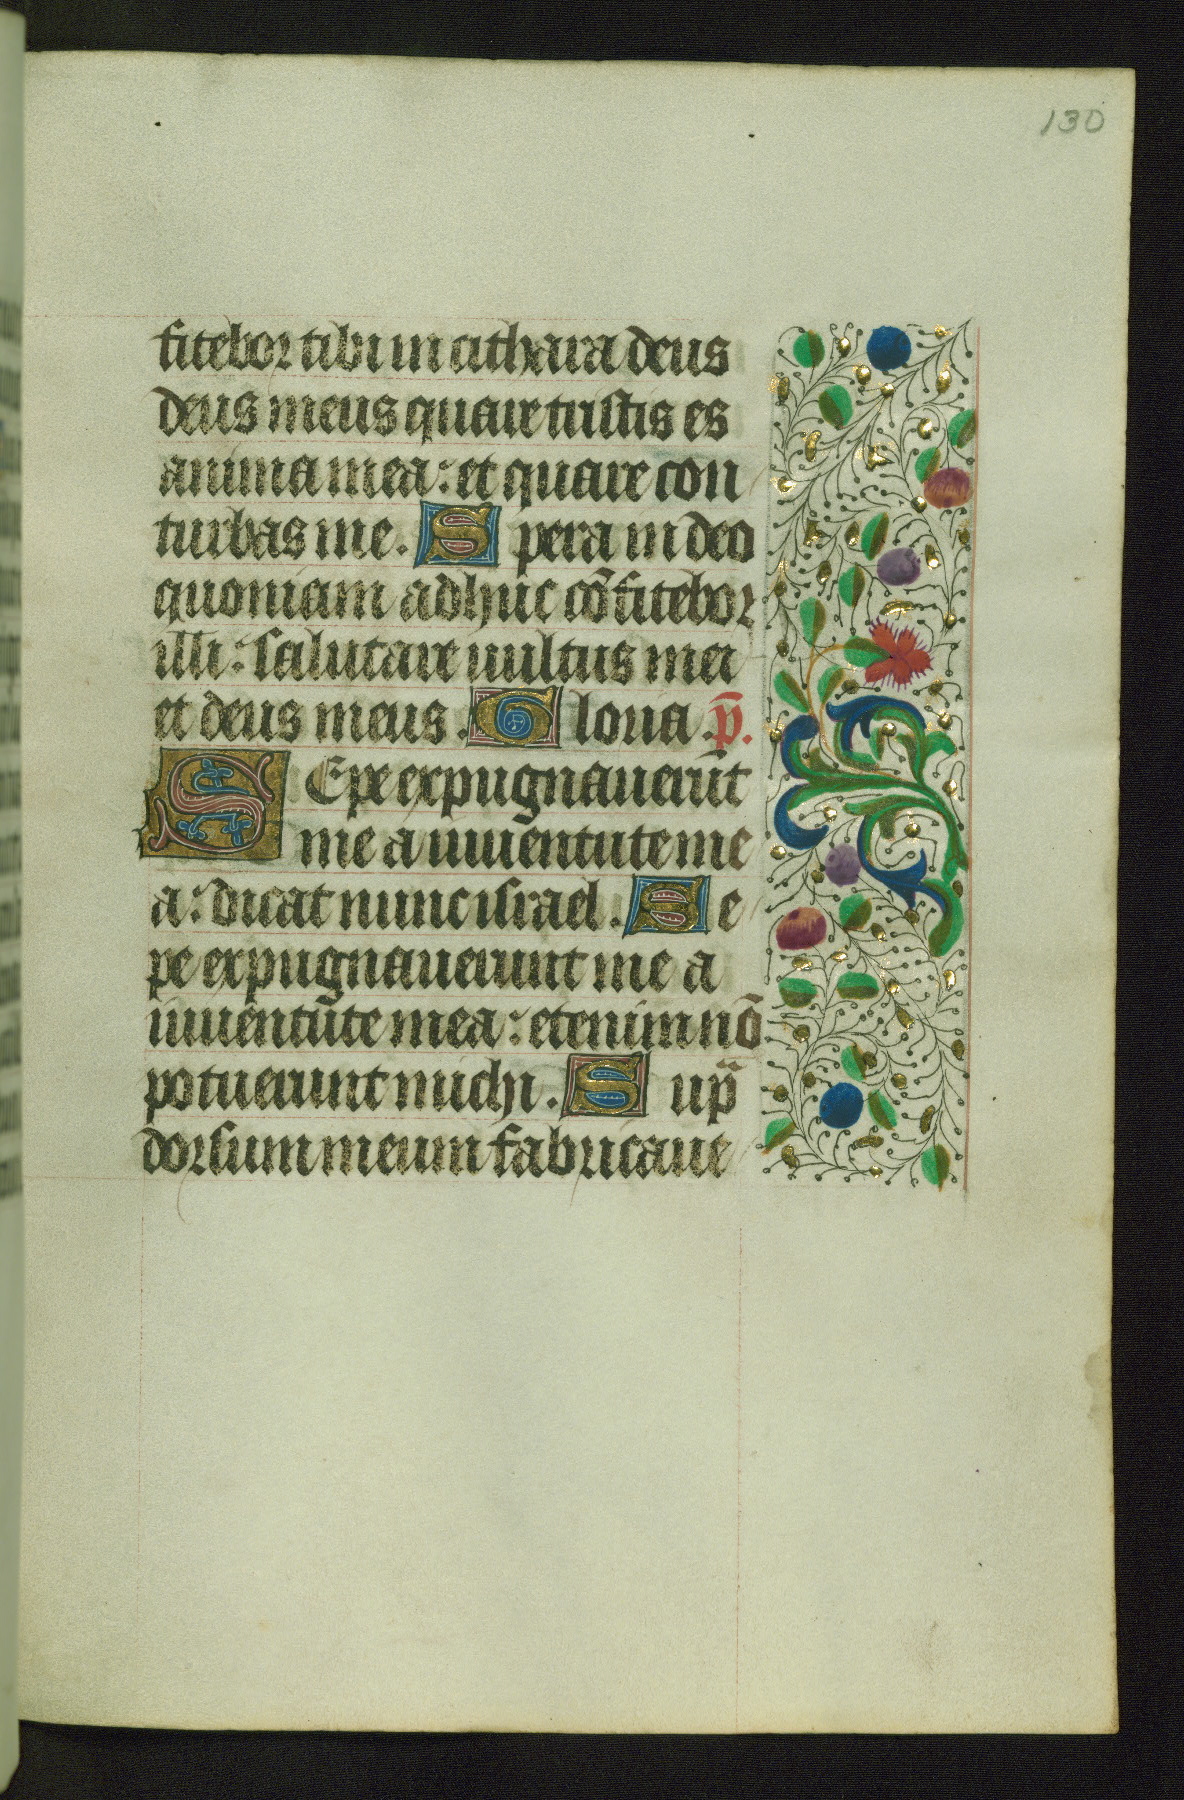 130
fitebor tibi in cithara deus
deus meus quare tristis es
anima mea: et quare con
turbas me. Spera in deo
quoniam adhuc cōfitebor
illi: salutare uultus mei
et deus meus. Gloria. p̄.
SEpe expugnauerūt
me a iuuentute me
a: dicat nunc israel. Se
pe expugnauerunt me a
iuuentute mea: etenim nō
potuerunt michi. Sup̄
dorsum meum fabricaue